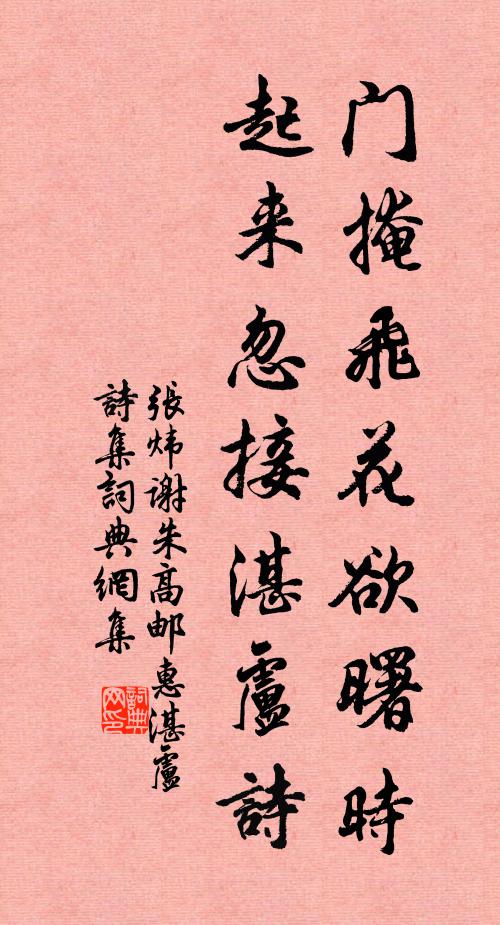 门掩飛花欲曙時
起来忽接湛盧詩
張炜谢朱高邮惠湛盧
詩集詞典網集
詞典網印